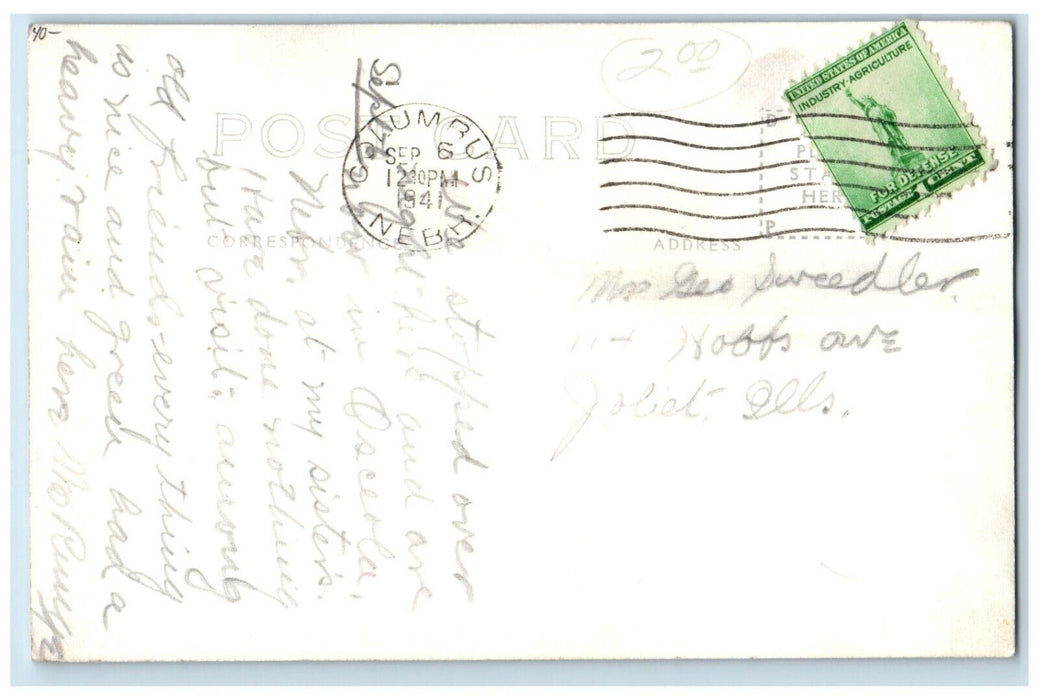 40-
2.00
POST CARD
CORRESPONDENCE
ADDRESS
COLUMBUS
SEP 6
12 30 PM
1941
NEBR.
UNITED STATES OF AMERICA
INDUSTRY-AGRICULTURE
FOR DEFENSE
POSTAGE 1 CENT
STA
HER
P
Sept
stopped over
here and are
now in Osceola,
Nebr, at my sisters.
Have done nothing
but visit, among
old friends-every thing
so nice and green had a
heavy rain here
Mrs Geo Sweedler.
114 Hobbs ave
Joliet, Ills.